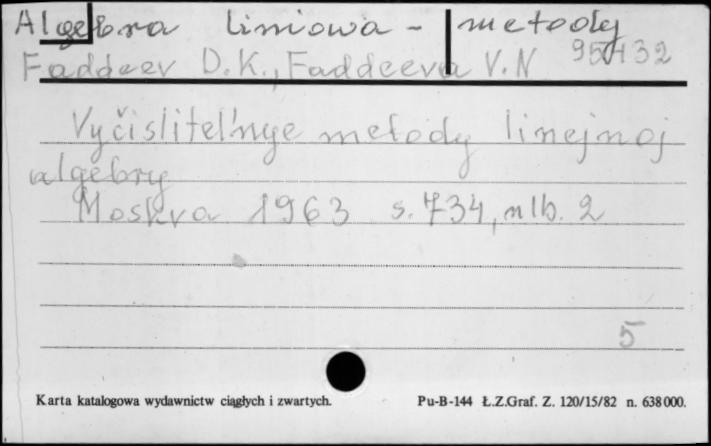 Algebra liniowa - metody
Faddeev D.K., Faddeeva V.N 95432
Vyčislitel'nye metody linejnoj
algebry
Moskva 1963 s. 734, nlb. 2
5
Karta katalogowa wydawnictw ciągłych i zwartych. Pu-B-144 Ł.Z.Graf. Z. 120/15/82 n. 638000.